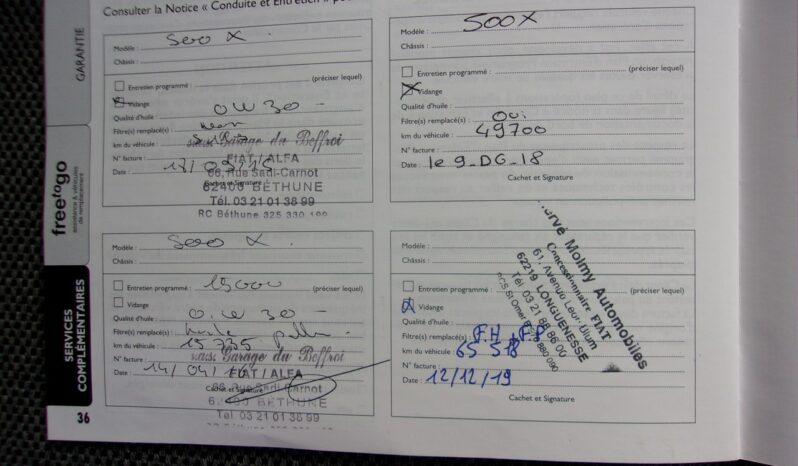 Consulter la Notice « Conduite et Entretien »
GARANTIE
freetogo
assistance & véhicules
de remplacement
SERVICES
COMPLÉMENTAIRES
36
Modèle : 500 X
Châssis :
Entretien programmé : (préciser lequel)
Vidange
Qualité d'huile : 0W30
Filtre(s) remplacé(s) :
km du véhicule :
N° facture :
Date :
Cachet et Signature
s.a.s. Garage du Beffroi
FIAT / ALFA
66, Rue Sadi-Carnot
62400 BÉTHUNE
Tél. 03 21 01 38 99
RC Béthune 325 330 199
Modèle : 500X
Châssis :
Entretien programmé : (préciser lequel)
Vidange
Qualité d'huile :
Filtre(s) remplacé(s) : Oui
km du véhicule : 49700
N° facture :
Date : le 9_DG_18
Cachet et Signature
Modèle : 500 X
Châssis :
Entretien programmé : 15000 (préciser lequel)
Vidange
Qualité d'huile :
Filtre(s) remplacé(s) : huile
km du véhicule : 15735
N° facture :
Date : 14/04/16
Cachet et Signature
s.a.s. Garage du Beffroi
FIAT / ALFA
66, Rue Sadi-Carnot
BÉTHUNE
Tél. 03 21 01 38 99
Modèle :
Châssis :
Entretien programmé : (préciser lequel)
Vidange
Qualité d'huile :
Filtre(s) remplacé(s) : F.H F.P
km du véhicule : 65 518
N° facture :
Date : 12/12/19
Cachet et Signature
Hervé Molmy Automobiles
Concessionnaire FIAT
61, Avenue Léon Blum
62219 LONGUENESSE
Tél. 03 21 88 86 00